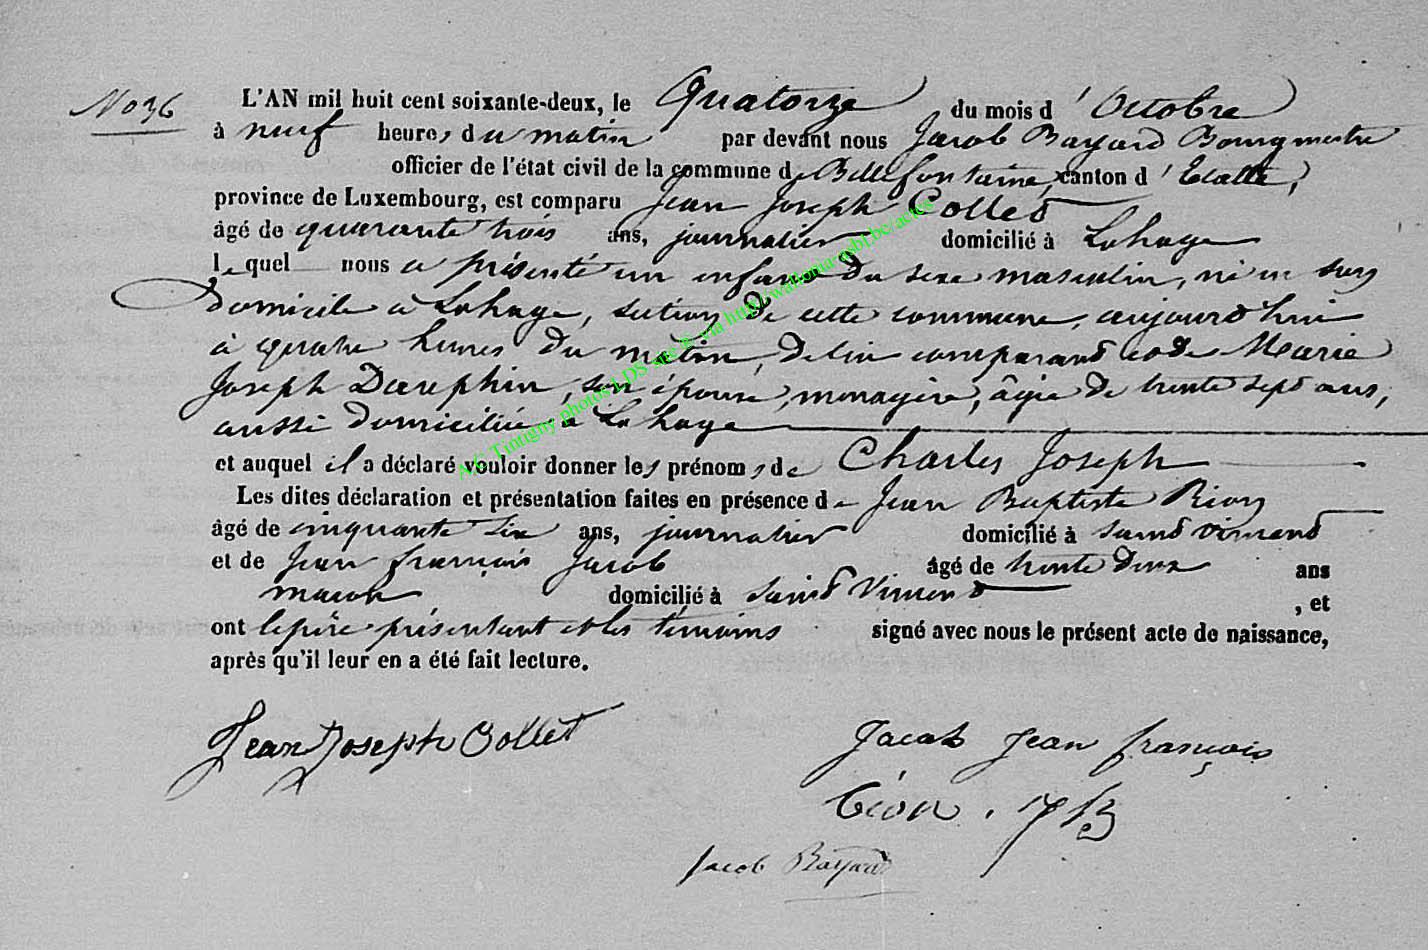 No 36
L'AN mil huit cent soixante-deux, le Quatorze du mois d'Octobre
à neuf heures du matin par devant nous Jacob Bayard Bourgmestre
officier de l'état civil de la commune de Bellefontaine, canton d'Etalle,
province de Luxembourg, est comparu Jean Joseph Collet
âgé de quarante trois ans, journalier domicilié à Lahage
lequel nous a présenté un enfant du sexe masculin, né en son
domicile à Lahage, section de cette commune, aujourd'hui
à quatre heures du matin, de lui comparant et de Marie
Joseph Dauphin, son épouse, menagère, âgée de trente sept ans,
aussi domiciliée à Lahage
et auquel il a déclaré vouloir donner les prénoms de Charles Joseph
Les dites déclaration et présentation faites en présence de Jean Baptiste Rion
âgé de cinquante six ans, journalier domicilié à Saint Vincent
et de Jean françois Jacob âgé de trente deux ans
macon domicilié à Saint Vincent, et
ont le père présentant et les témoins signé avec nous le présent acte de naissance,
après qu'il leur en a été fait lecture.
Jean Joseph Collet
Jacob Jean françois
J B
Jacob Bayard
A.C Tintigny photos LDS via http://wallonia-asbl.be/actes